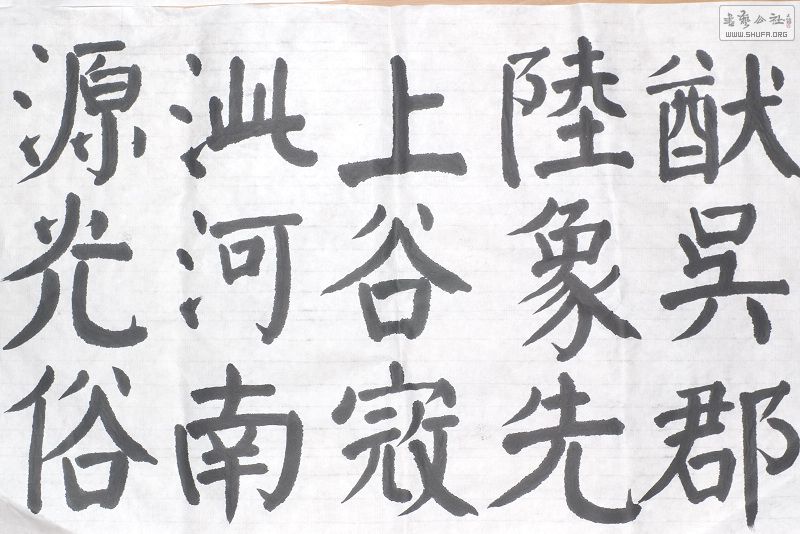 猷吳郡
陸象先
上谷寇
泚河南
源光俗
書藝公社
WWW.SHUFA.ORG